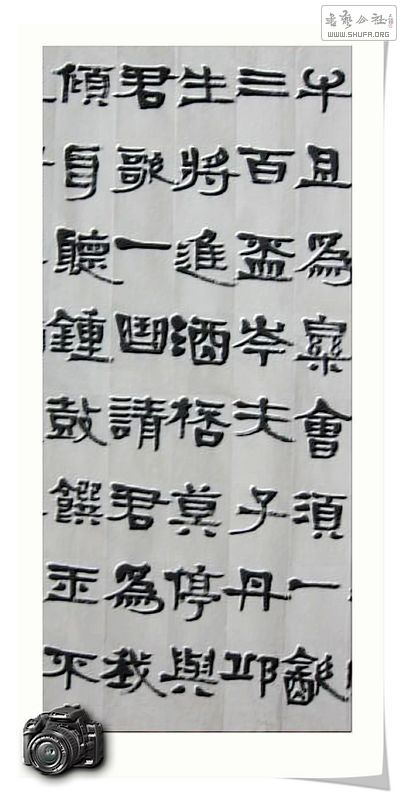 牛且為樂會須一飲
三百盃岑夫子丹邱
生將進酒桮莫停與
君歌一曲請君為我
傾耳聽鍾鼓饌玉不
書藝公社
WWW.SHUFA.ORG